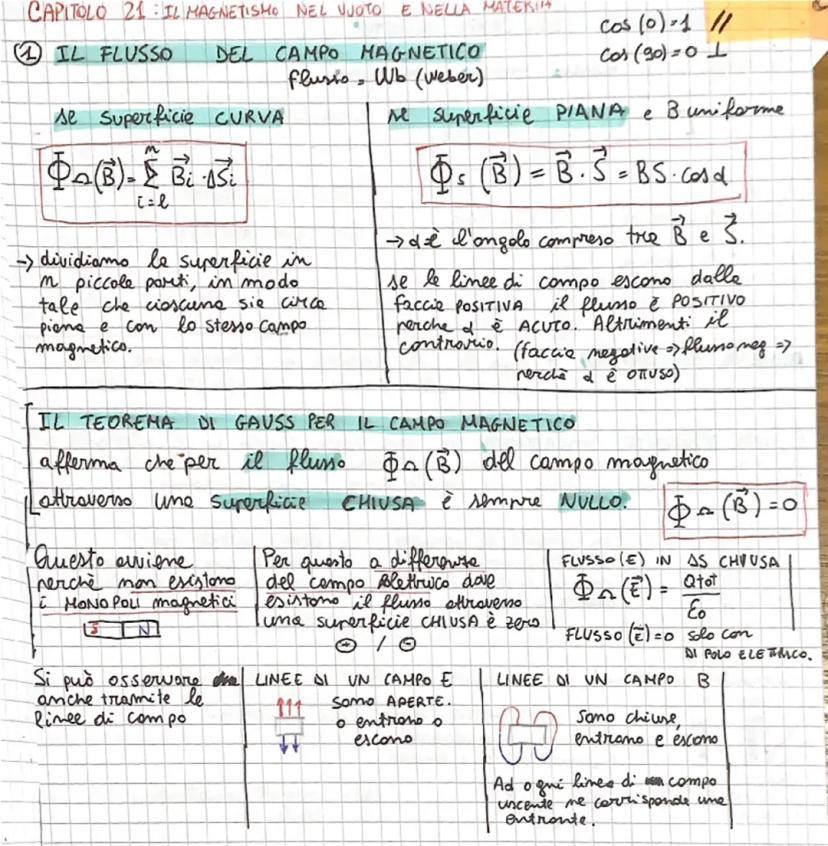 CAPITOLO 21: IL MAGNETISMO NEL VUOTO E NELLA MATERIA
cos (0)=1 //
cos (90)=0 ⊥
① IL FLUSSO DEL CAMPO MAGNETICO
flusso = Wb (weber)
se superficie CURVA
Φ_Ω(B⃗) = Σ_{i=1}^{n} B⃗i · ΔS⃗i
→ dividiamo la superficie in
n piccole parti, in modo
tale che ciascuna sia circa
piana e con lo stesso campo
magnetico.
se superficie PIANA e B uniforme
Φs (B⃗) = B⃗ · S⃗ = BS · cos α
→ α è l'angolo compreso tra B⃗ e S⃗.
se le linee di campo escono dalla
faccia POSITIVA il flusso è POSITIVO
perche α è ACUTO. Altrimenti il
contrario. (faccia negativa => flusso neg =>
perchè α è OTTUSO)
IL TEOREMA DI GAUSS PER IL CAMPO MAGNETICO
afferma che per il flusso Φ_Ω(B⃗) del campo magnetico
attraverso una superficie CHIUSA è sempre NULLO.
Φ_Ω (B⃗) = 0
Questo avviene
perchè non esistono
i MONOPOLI magnetici
S N
Per questo a differenza
del campo elettrico dove
esistono il flusso attraverso
una superficie CHIUSA è zero
⊕ / ⊖
FLUSSO(E) IN ΔS CHIUSA
Φ_Ω(E⃗) = Qtot / ε0
FLUSSO (E⃗)=0 solo con
DI POLO ELETTRICO.
Si può osservare
anche tramite le
linee di campo
LINEE DI UN CAMPO E
sono APERTE.
o entrano o
escono
LINEE DI UN CAMPO B
Sono chiuse,
entrano e escono
Ad ogni linea di campo
uscente ne corrisponde una
entrante.